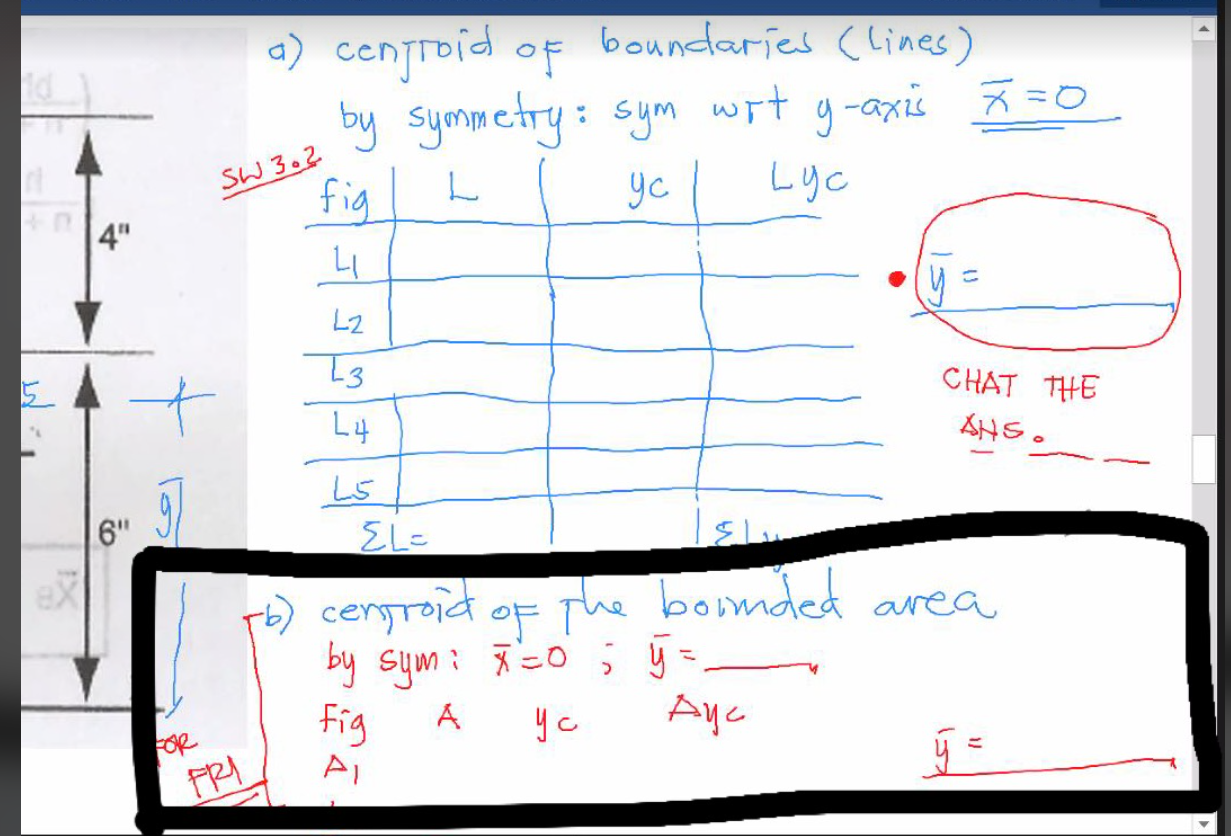 a) centroid of boundaries (lines)
by symmetry: sym wrt y-axis x̅ = 0
SW 3.2
fig L yc Lyc
L1
L2
L3
L4
L5
ΣL=
y̅ =
CHAT THE
ANS.
4"
5
6"
y̅
b) centroid of the bounded area
by sym: x̅ = 0 ; y̅ =
fig A yc Ayc
A1
y̅ =
FOR
FRI